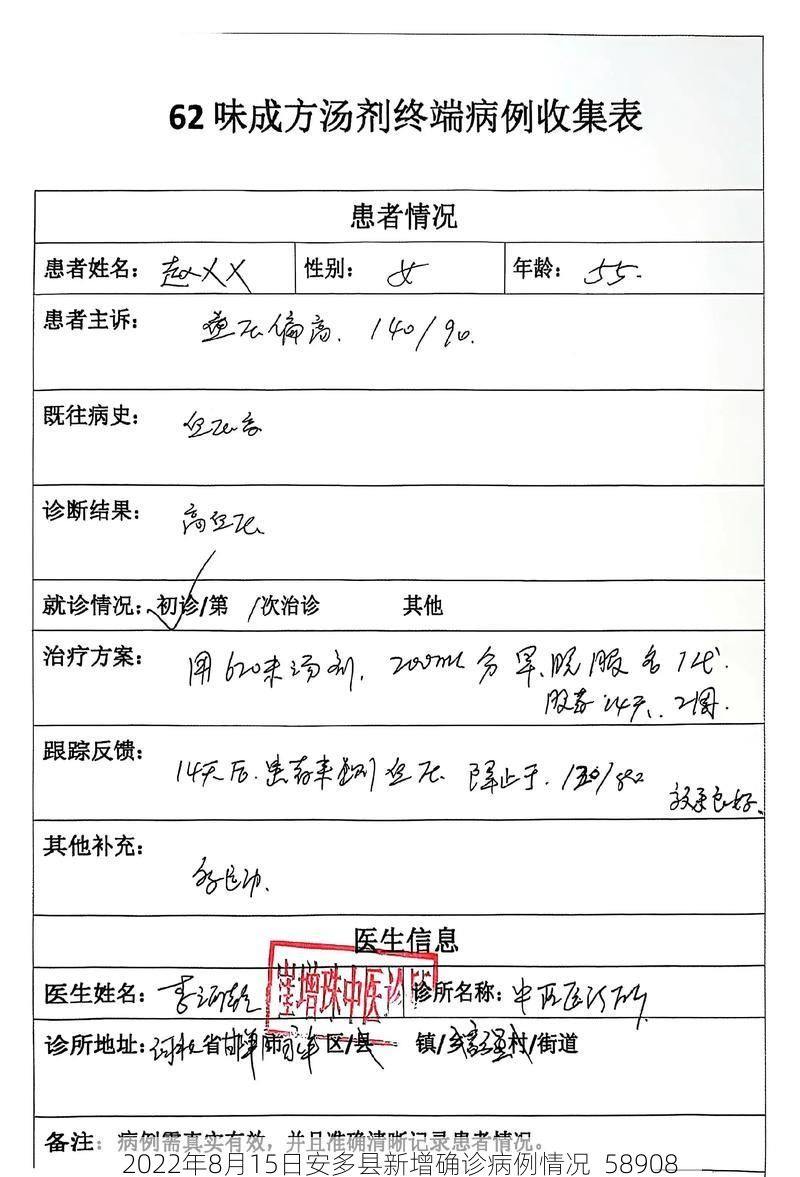 62 味成方汤剂终端病例收集表
患者情况
患者姓名： 赵XX 性别： 女 年龄： 55.
患者主诉： 血压偏高. 140/90.
既往病史： 血压高
诊断结果： 高血压
就诊情况：初诊/第 /次治诊 其他
治疗方案： 用62味汤剂, 200ml 分早、晚服各1袋.
服药14天、2周.
跟踪反馈： 14天后. 患者来测血压 降止于.
效果良好.
其他补充：
医生信息
医生姓名： 李 崔增珠中医诊所 诊所名称： 中医诊所
诊所地址：河北省邯郸市 区/县 镇/乡 村/街道
备注：病例需真实有效，并且准确清晰记录患者情况。
2022年8月15日安多县新增确诊病例情况 58908